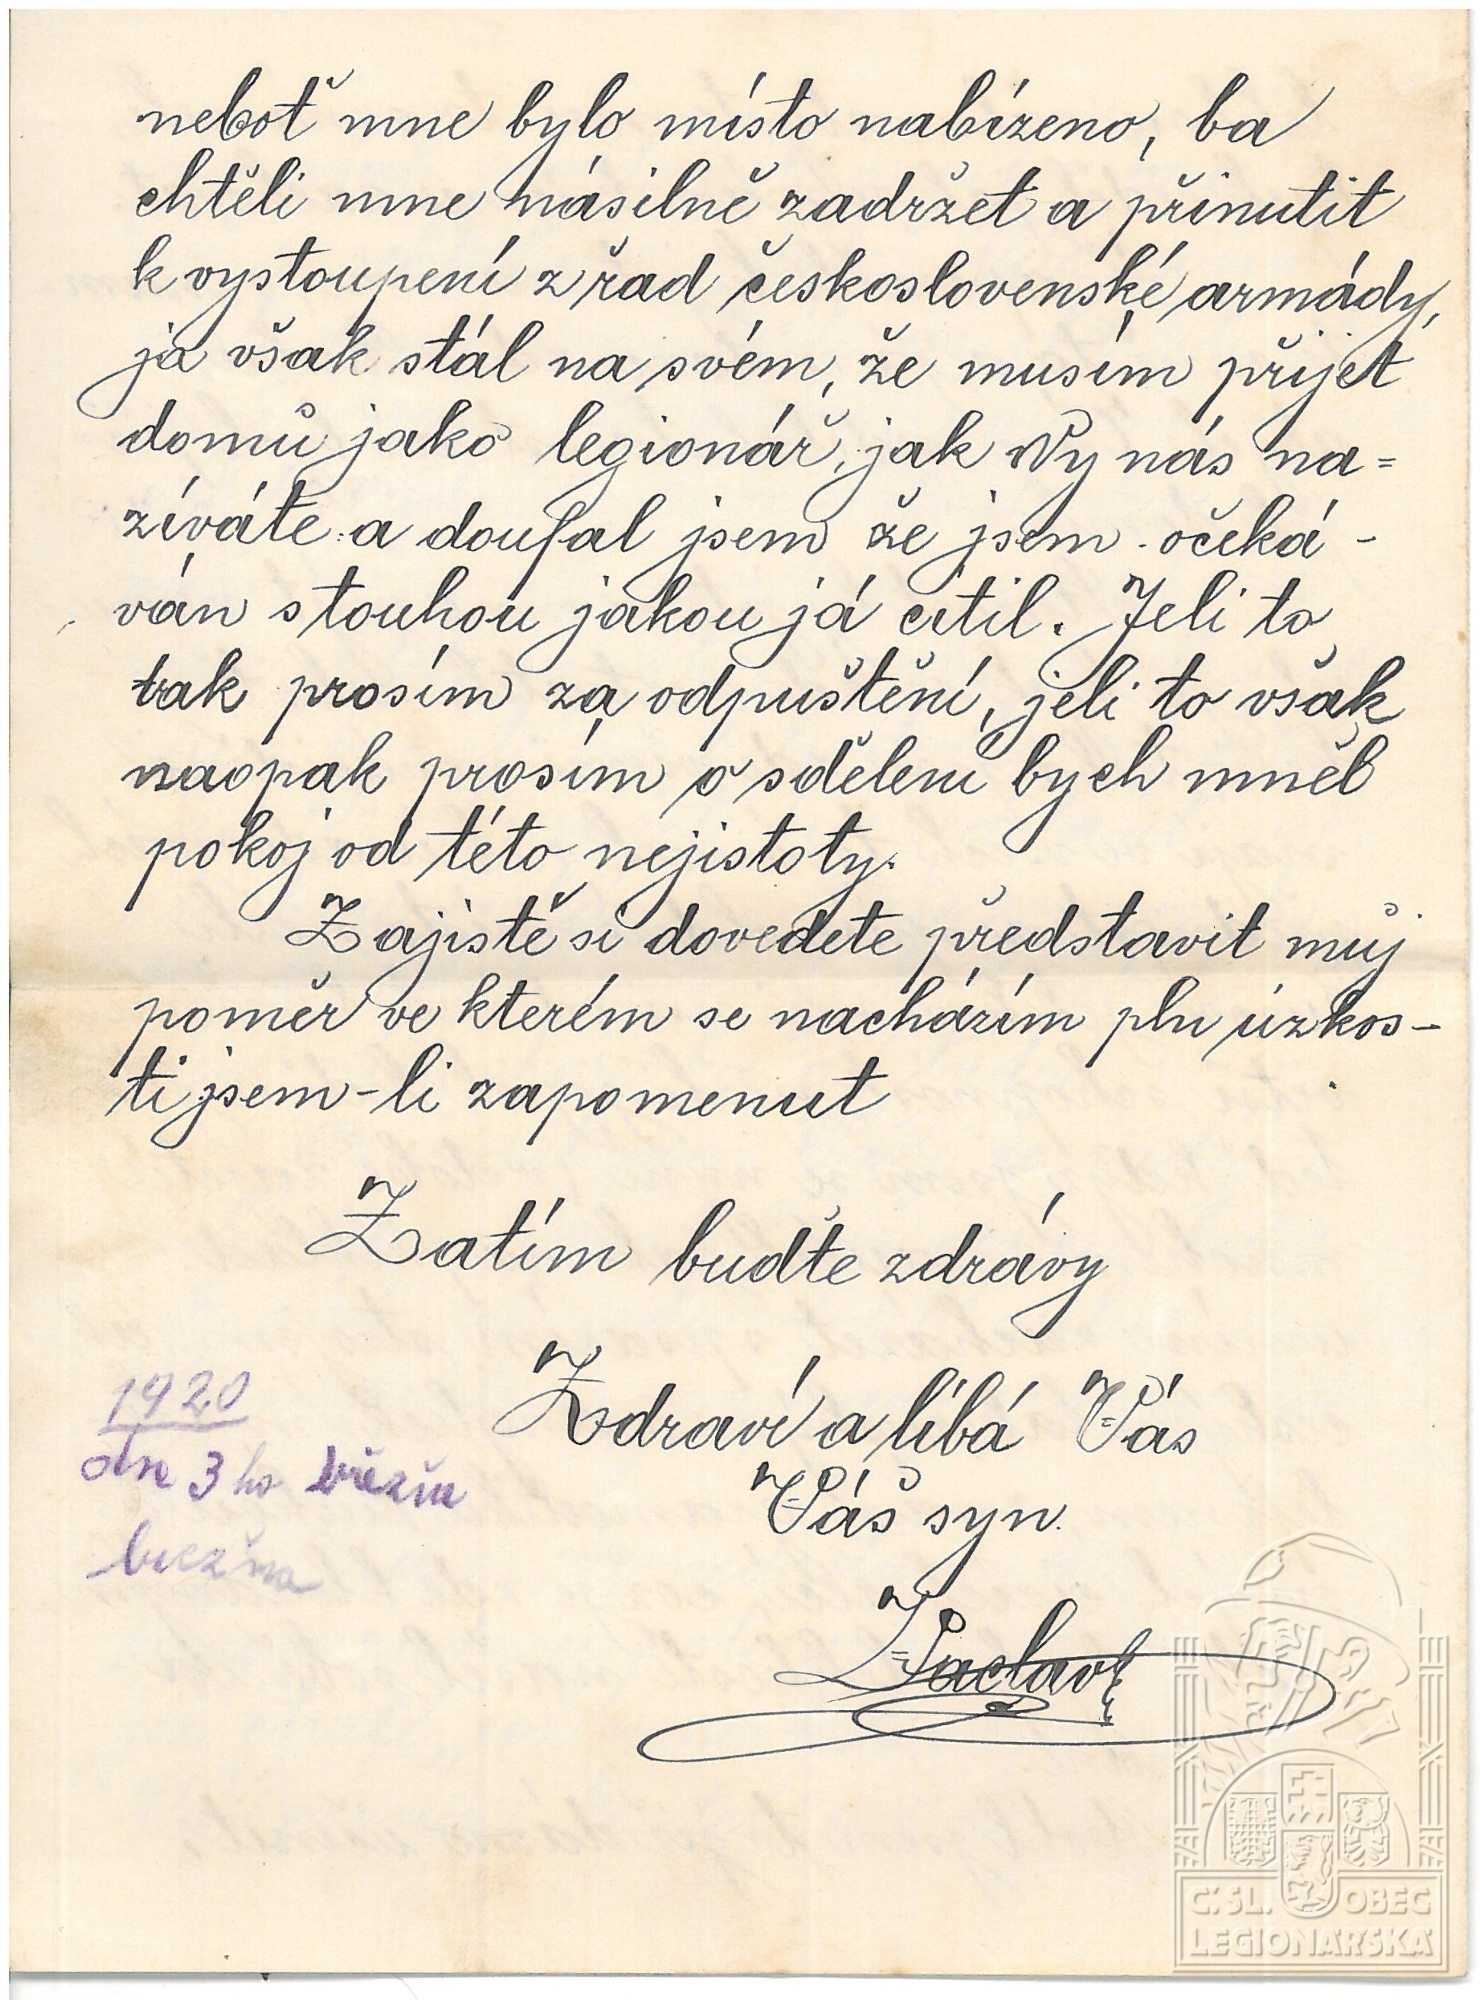 neboť mne bylo místo nabízeno, ba
chtěli mne násilně zadržet a přinutit
k vystoupení z řad československé armády,
já však stál na svém, že musím přijet
domů jako legionář, jak Vy nás na=
zíváte a doufal jsem že jsem očeká-
ván s touhou jakou já cítil. Jeli to
tak prosím za odpuštění, jeli to však
naopak prosím o sdělení bych mněl
pokoj od této nejistoty.
Zajistě si dovedete představit můj
poměr ve kterém se nacházím pln úzkos-
ti jsem-li zapomenut
Zatím buďte zdrávy
Zdraví a líbá Vás
Váš syn.
Václav
1920
dne 3ho března
března
Č. SL. OBEC
LEGIONÁŘSKÁ